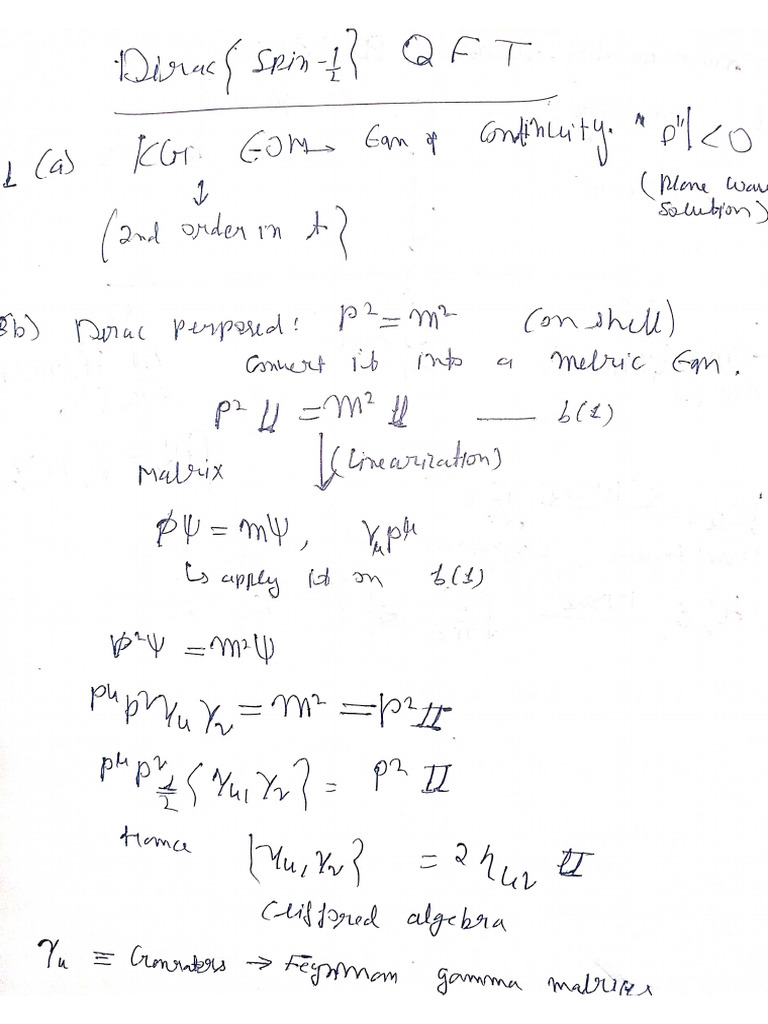 Dirac { spin-1/2 } QFT
1 (a) KG EOM → Eqn of continuity. "ρ"|<0
(plane wav
solution)
↓
(2nd order in t}
b) Dirac perposed: p² = m² (on shell)
Convert it into a metric Eqn.
p² 𝟙 = m² 𝟙 —— b(1)
Matrix ↓ (Linearization)
p̸Ψ = mΨ, γ_μ p^μ
↳ apply it on b(1)
p̸²Ψ = m²Ψ
p^μ p^ν γ_μ γ_ν = m² = p² 𝟙
p^μ p^ν 1/2 {γ_μ, γ_ν} = p² 𝟙
Hence {γ_μ, γ_ν} = 2 η_μν 𝟙
Cliffored algebra
γ_μ ≡ Genraters → Feynman gamma matrices